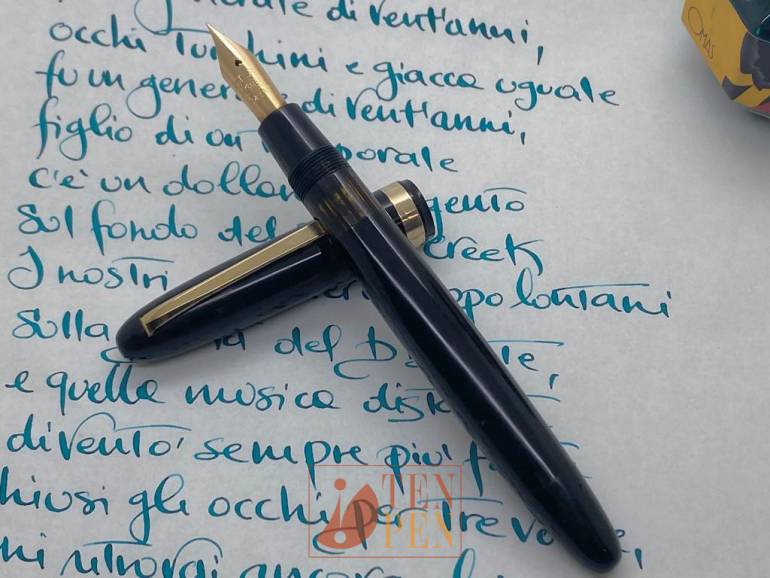 generale di vent'anni,
occhi turchini e giacca uguale
fu un gener di vent'anni,
figlio di un temporale
c'è un dollaro gento
Sul fondo del Creek
I nostri troppo lontani
Sulla del B te,
e quella musica dist
diventò sempre piu' f
hiusi gli occhi per tre vo e,
mi ritrovai ancora lì
OMAS
TEN
PEN